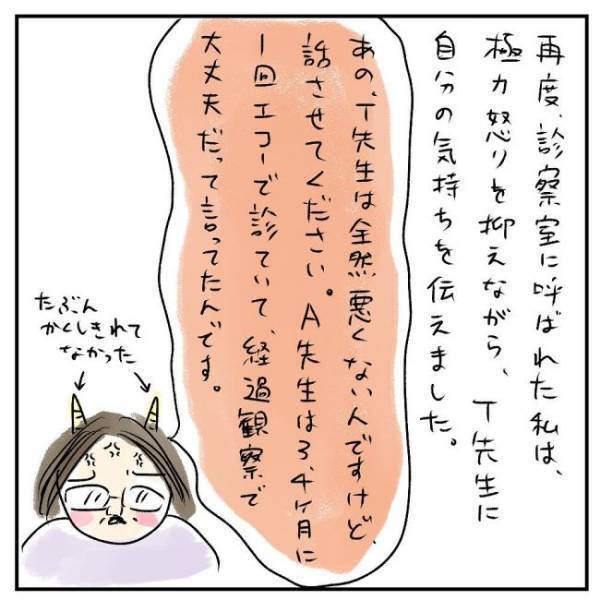 再度、診察室に呼ばれた私は、
極力怒りを抑えながら、T先生に
自分の気持ちを伝えました。
あの、T先生は全然悪くないんですけど、
話させてください。A先生は3、4ヶ月に
1回エコーで診ていて、経過観察で
大丈夫だって言ってたんです。
たぶん
かくしきれて
なかった